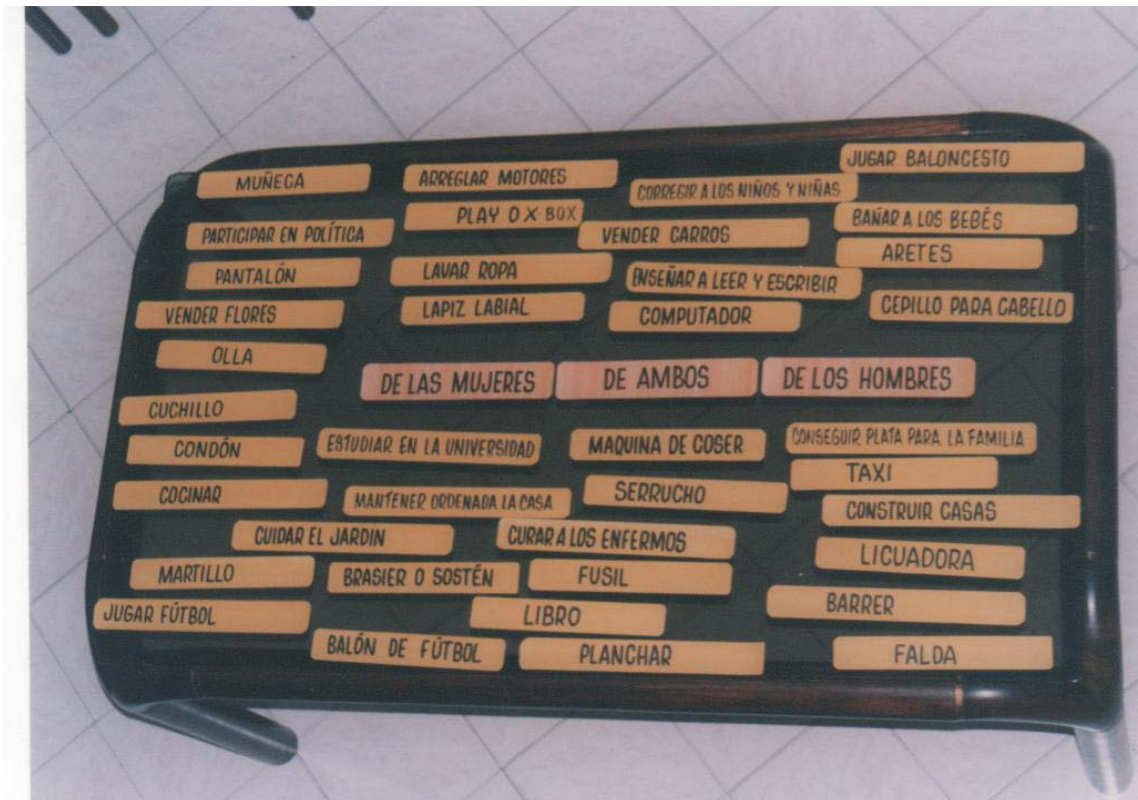 MUÑECA
ARREGLAR MOTORES
CORREGIR A LOS NIÑOS Y NIÑAS
JUGAR BALONCESTO
PARTICIPAR EN POLÍTICA
PLAY O X-BOX
VENDER CARROS
BAÑAR A LOS BEBÉS
PANTALÓN
LAVAR ROPA
ENSEÑAR A LEER Y ESCRIBIR
ARETES
VENDER FLORES
LAPIZ LABIAL
COMPUTADOR
CEPILLO PARA CABELLO
OLLA
DE LAS MUJERES
DE AMBOS
DE LOS HOMBRES
CUCHILLO
CONDÓN
ESTUDIAR EN LA UNIVERSIDAD
MAQUINA DE COSER
CONSEGUIR PLATA PARA LA FAMILIA
TAXI
COCINAR
MANTENER ORDENADA LA CASA
SERRUCHO
CONSTRUIR CASAS
CUIDAR EL JARDIN
CURAR A LOS ENFERMOS
LICUADORA
MARTILLO
BRASIER O SOSTÉN
FUSIL
BARRER
JUGAR FÚTBOL
LIBRO
BALÓN DE FÚTBOL
PLANCHAR
FALDA